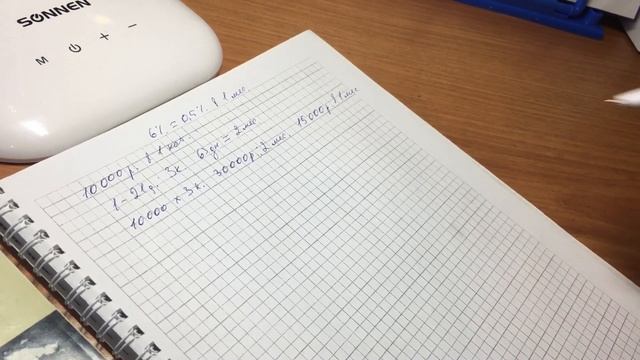 SONNEN
M + −
6% = 0,5% в 1 мес.
10 000 р. в 1 кот.
1 - 21 д. 3к. 63 дн = 2 мес
10 000 х 3 к. 30 000 р : 2 мес. 15 000 р в 1 мес